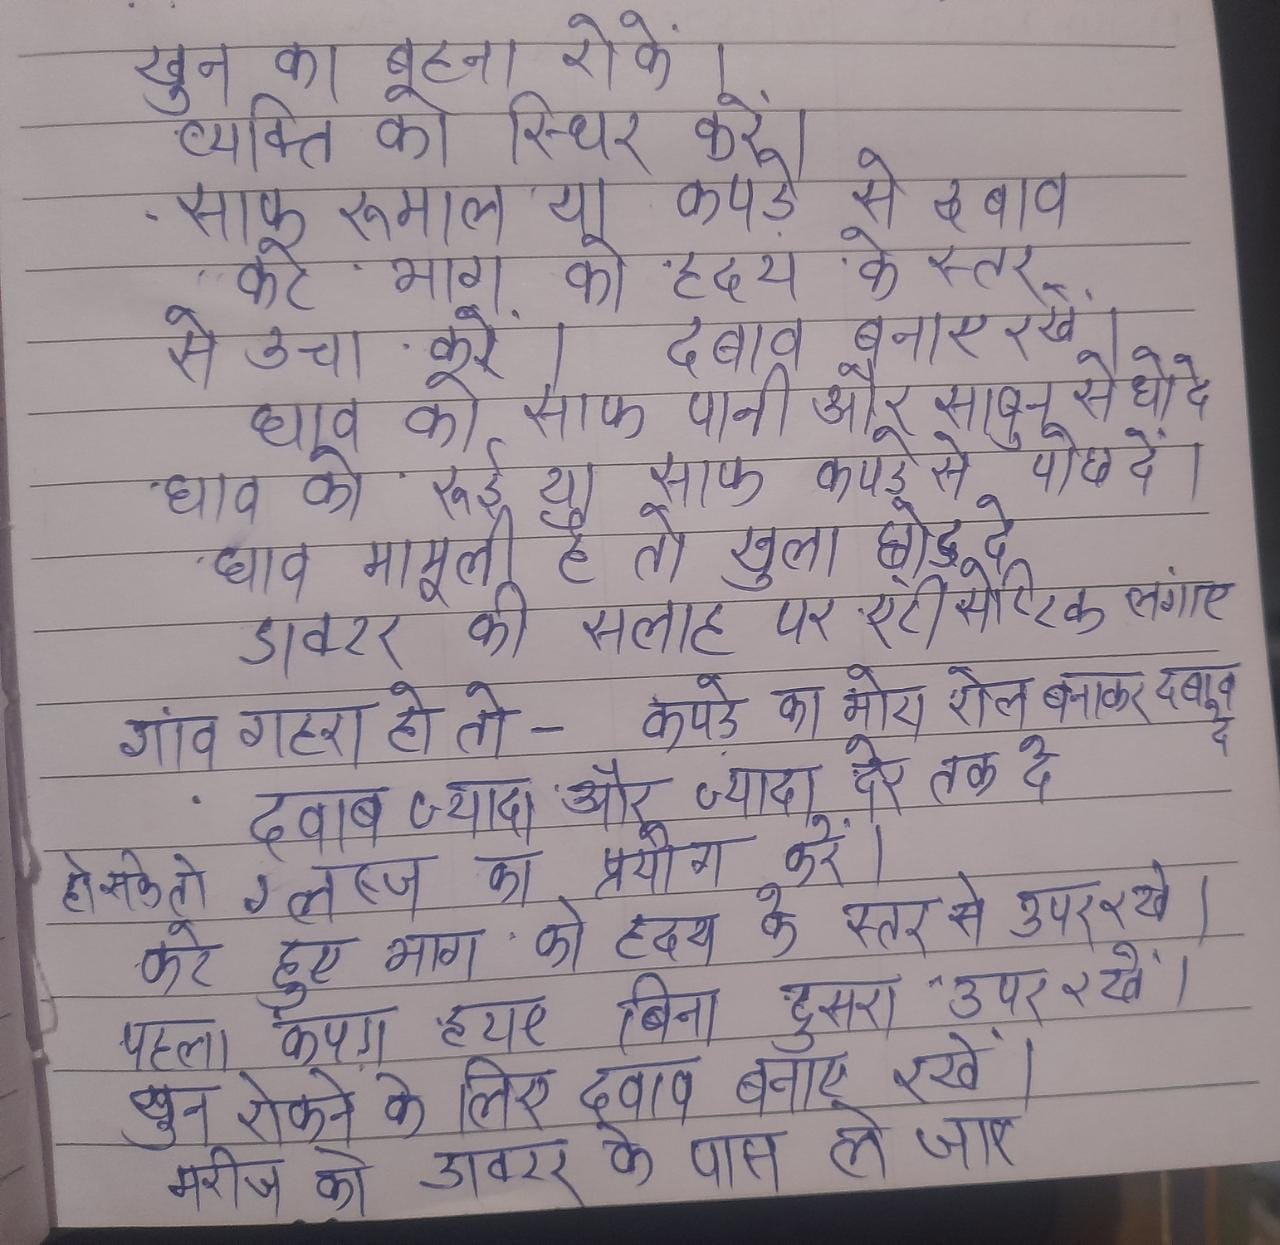 खुन का बहना रोकें।
व्यक्ति को स्थिर करें।
साफ रूमाल या कपड़े से दबाव
कटे भाग को हृदय के स्तर
से उचा करें। दबाव बनाए रखें।
घाव को साफ पानी और साबुन से धो दे
घाव को रूई या साफ कपड़े से पोछ दें।
घाव मामूली है तो खुला छोड़ दे
डाक्टर की सलाह पर एंटीसेप्टिक लगाए
गांव गहरा हो तो - कपड़े का मोटा रोल बनाकर दबाव दे
दवाब ज्यादा और ज्यादा देर तक दे
हो सके तो ग्लब्ज का प्रयोग करें।
कटे हुए भाग को हृदय के स्तर से उपर रखे।
पहला कपड़ा हटाए बिना दुसरा उपर रखें।
खुन रोकने के लिए दवाव बनाए रखें।
मरीज को डाक्टर के पास ले जाए